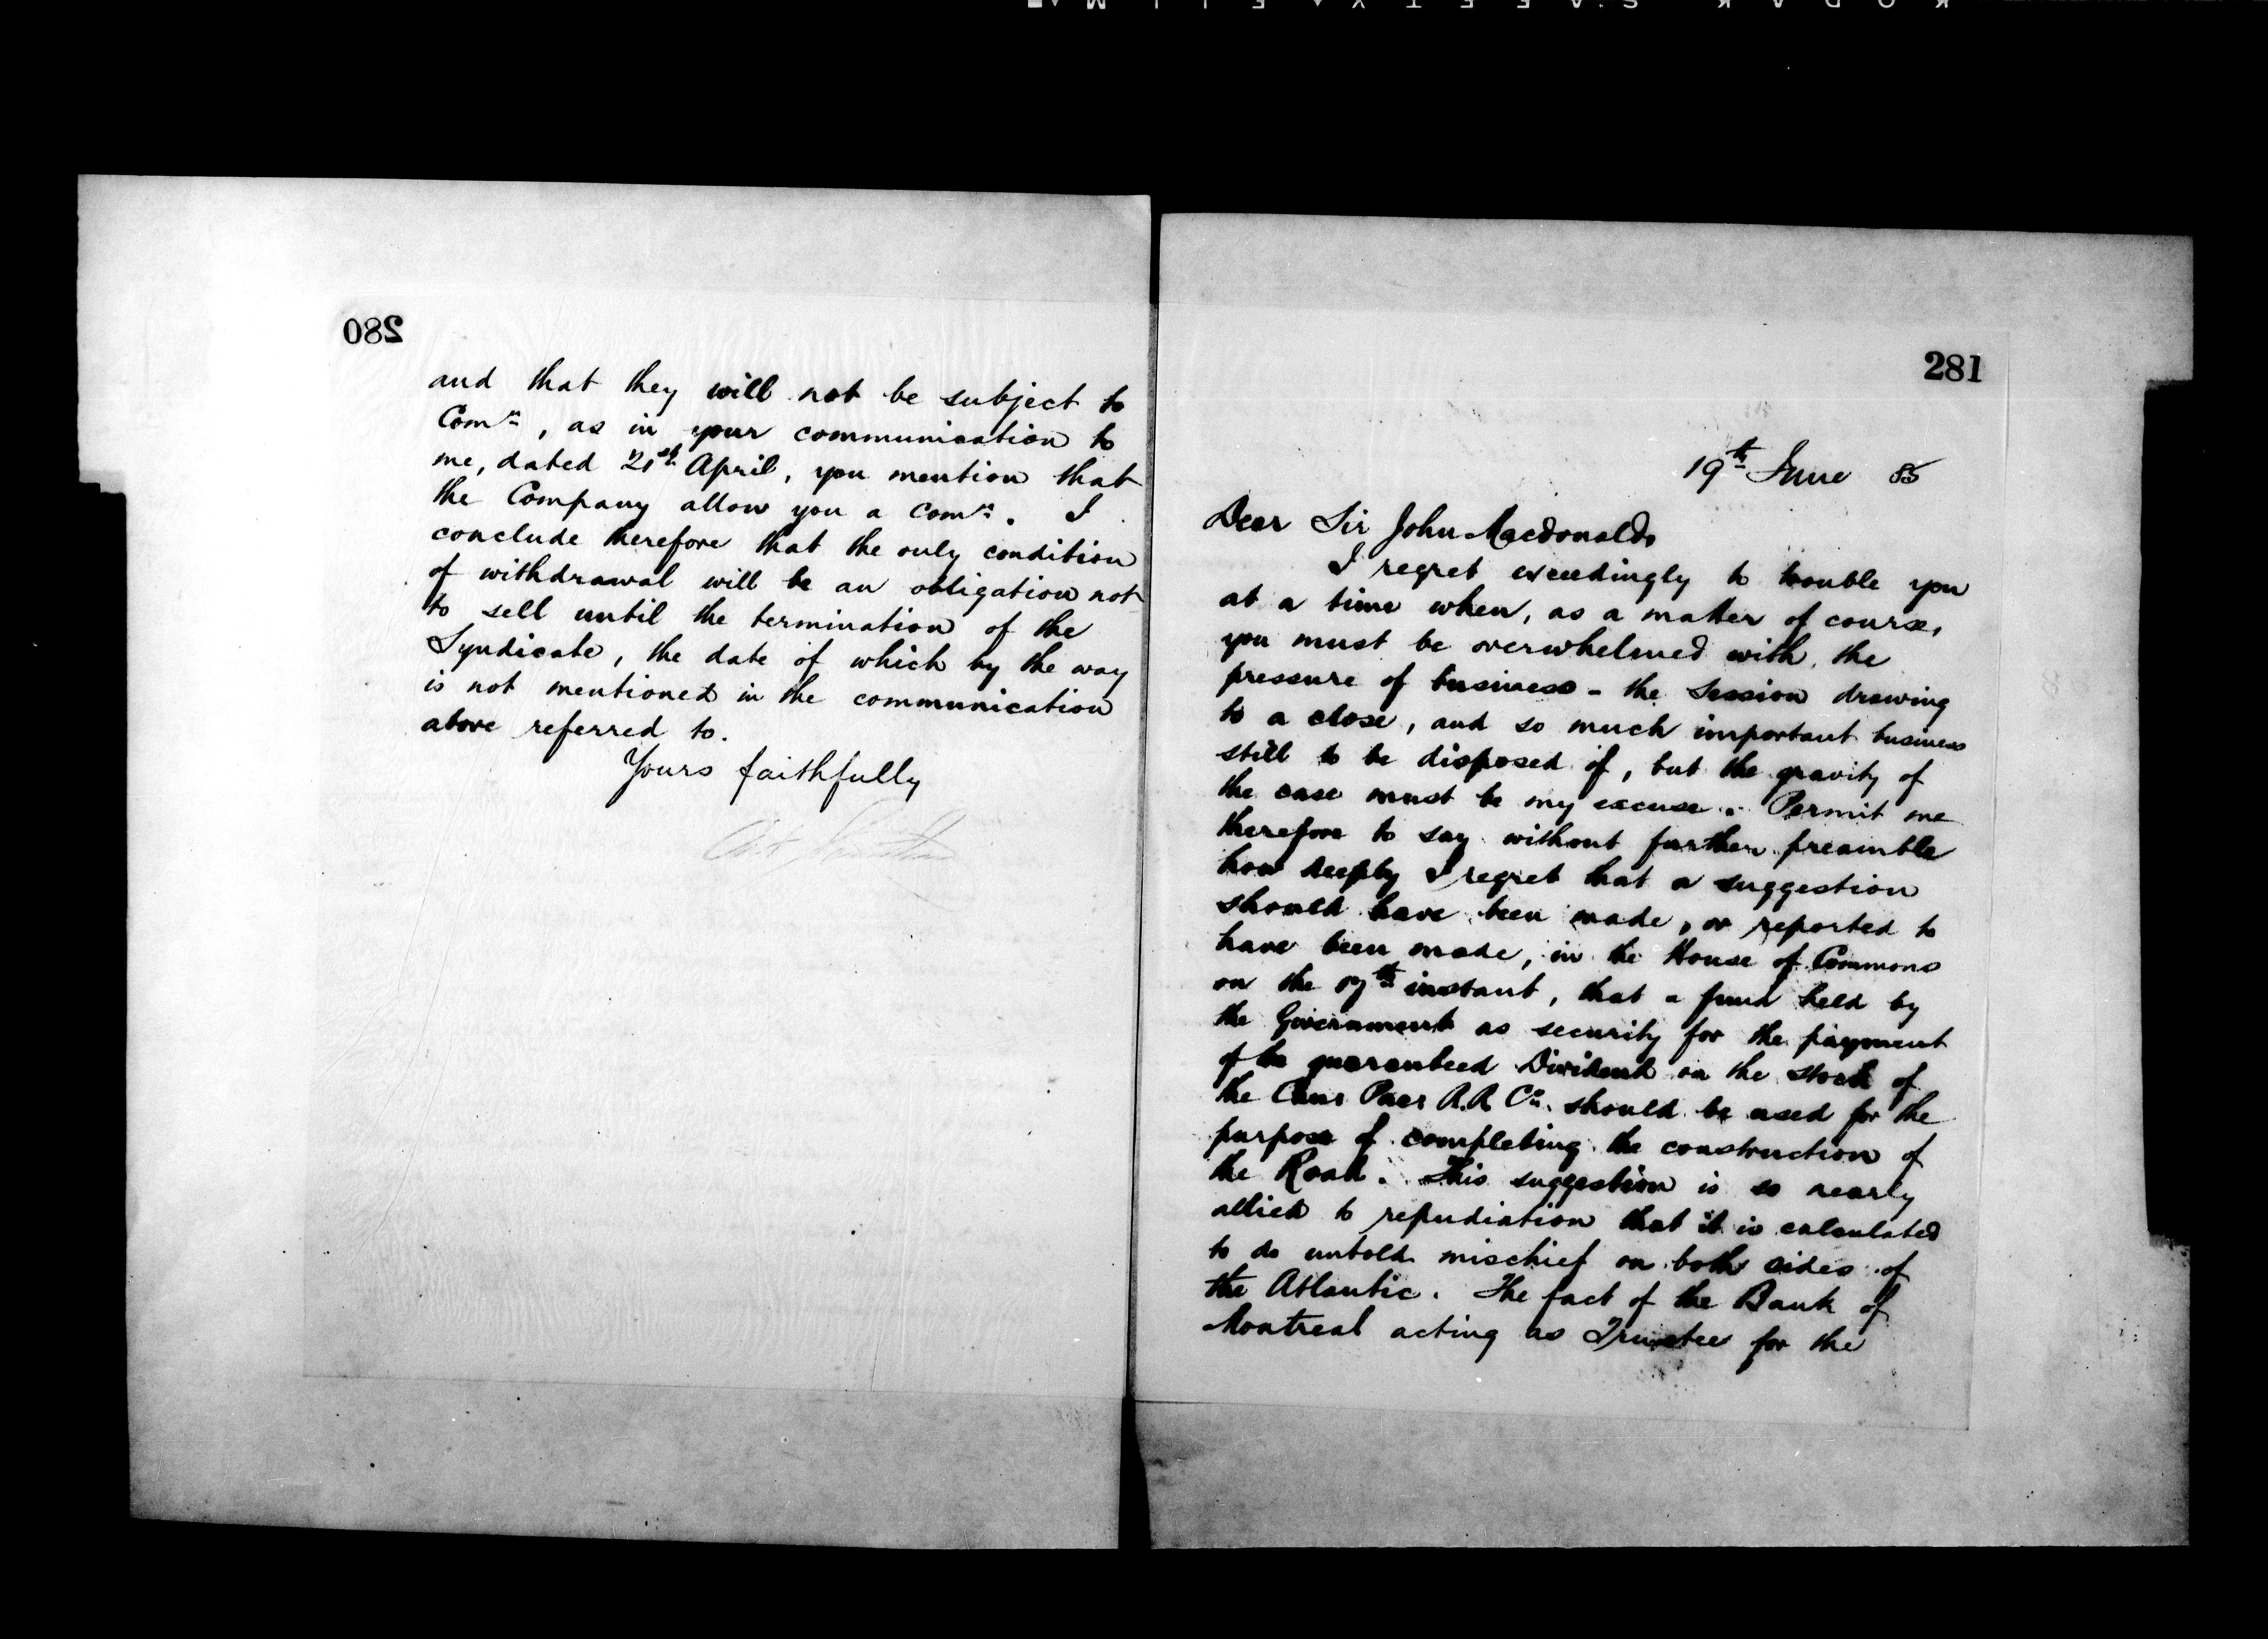 280
and that they will not be subject to
Comn, as in your communication to
me, dated 21st April, you mention that
the Company allow you a Comn. I
conclude therefore that the only condition
of withdrawal will be an obligation not
to sell until the termination of the
Syndicate, the date of which by the way
is not mentioned in the communication
above referred to.
Yours faithfully
281
19th June 85
Dear Sir John Macdonald,
I regret exceedingly to trouble you
at a time when, as a matter of course,
you must be overwhelmed with the
pressure of business - the Session drawing
to a close, and so much important business
still to be disposed of, but the gravity of
the case must be my excuse. Permit me
therefore to say without further preamble
how deeply I regret that a suggestion
should have been made, or reported to
have been made, in the House of Commons
on the instant, that a fund held by
the Government as security for the payment
of the guaranteed Dividend on the stock of
the R.R. Co. should be used for the
purpose of completing the construction of
the Road. This suggestion is so nearly
allied to repudiation that it is calculated
to do untold mischief on both sides of
the Atlantic. The fact of the Bank of
Montreal acting as Trustee for the